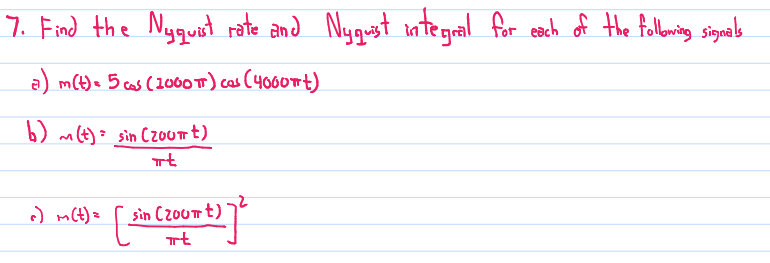 7. Find the Nyquist rate and Nyquist integral for each of the following signals
a) m(t) = 5 cos (1000π) cos (4000πt)
b) m(t) = sin (200πt) / πt
c) m(t) = [ sin (200πt) / πt ]²